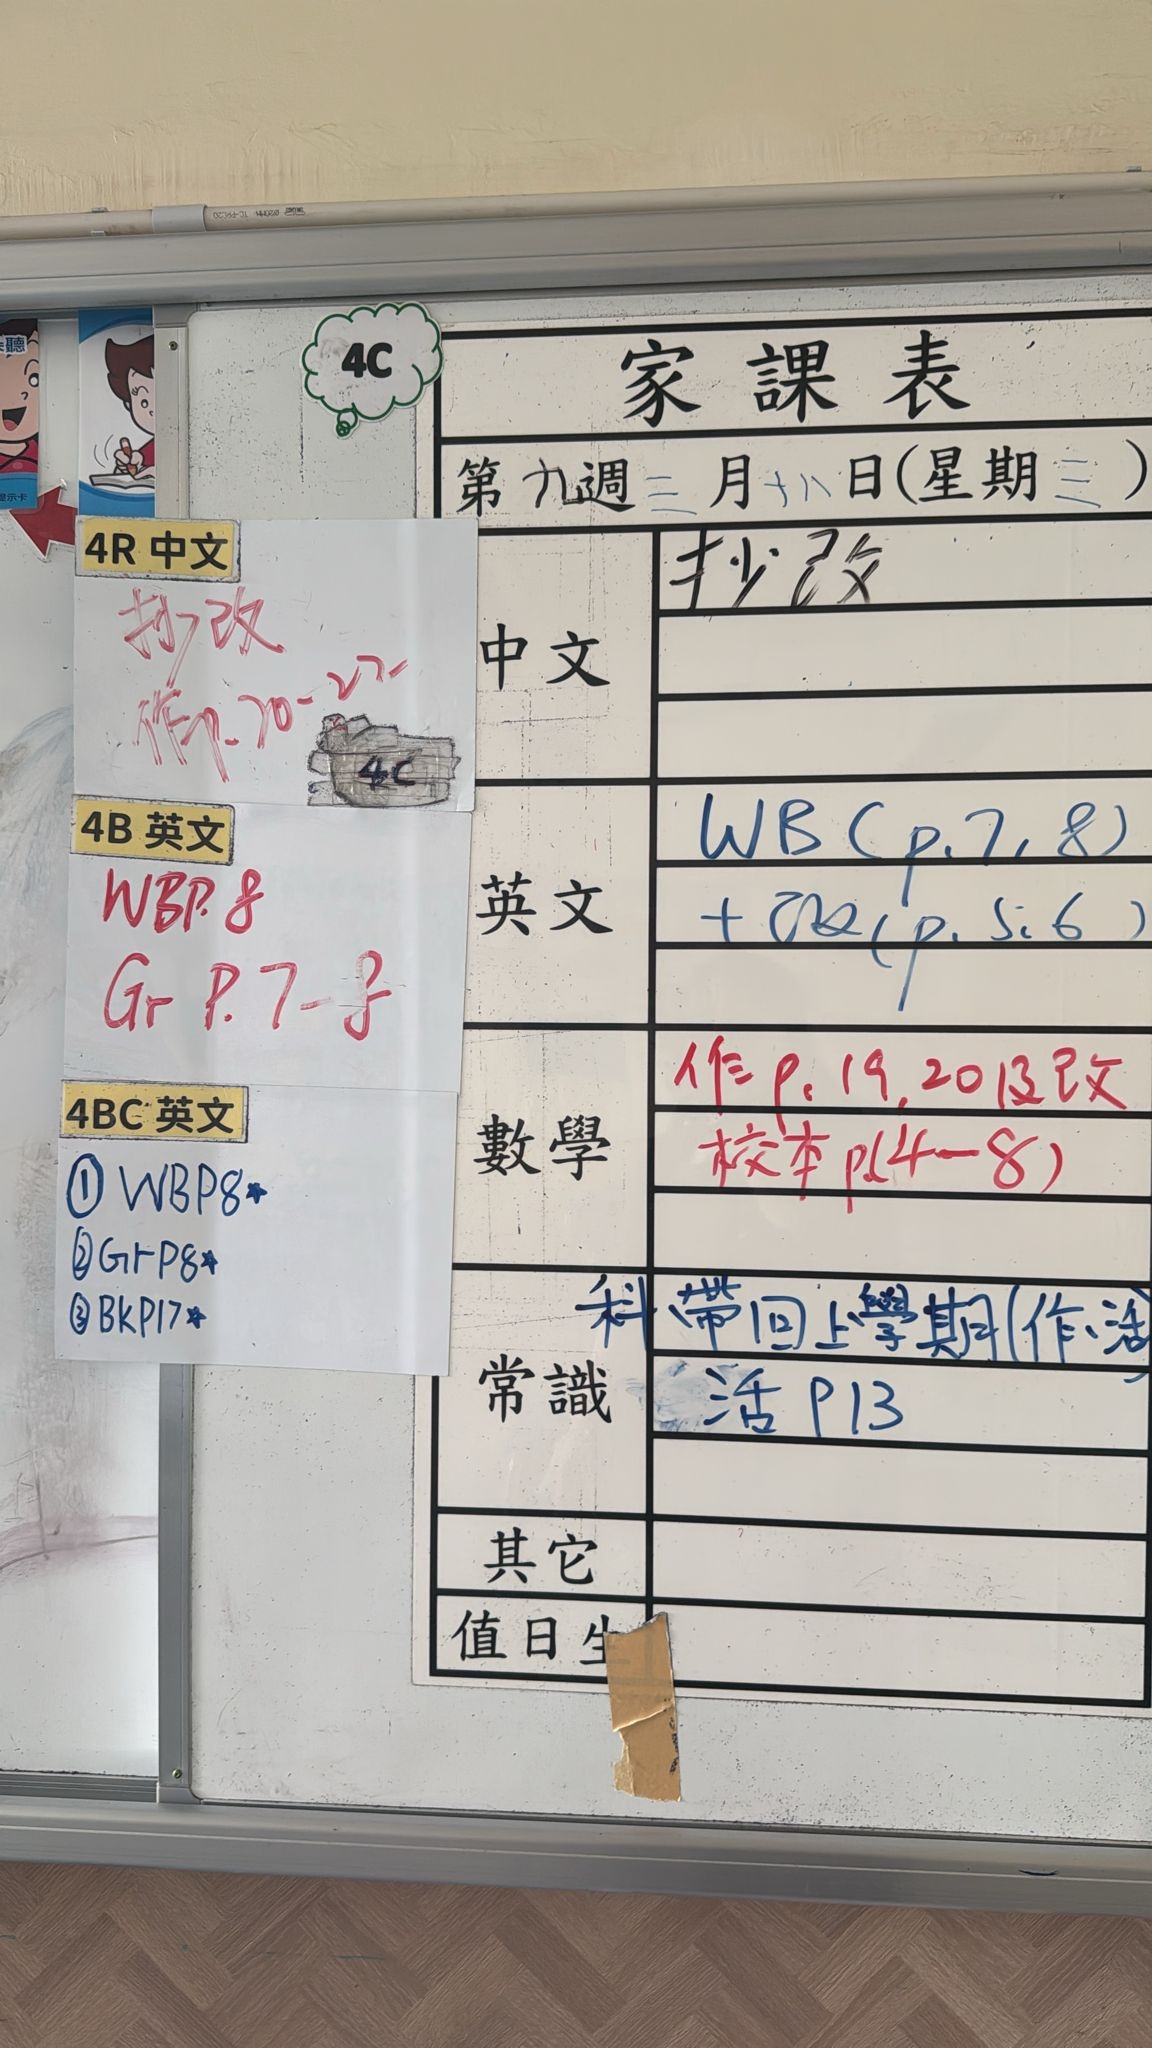 4C
家課表
第九週三月十八日(星期三)
中文
抄改
英文
WB(p.7,8)
+改(p.5,6)
數學
作p.19,20及改
校本p(4-8)
常識
科、帶回上學期(作、活
活P13
其它
值日生
4R 中文
抄改
作p.20-22
4C
4B 英文
WBP.8
Gr P.7-8
4BC 英文
① WBP8★
② GrP8★
③ BKP17★
提示卡